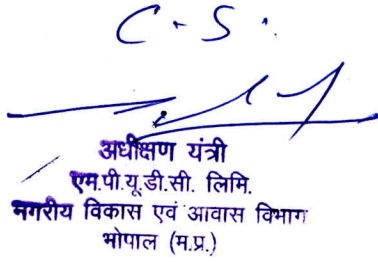 C - S .
अधीक्षण यंत्री
एम.पी.यू.डी.सी. लिमि.
नगरीय विकास एवं आवास विभाग
भोपाल (म.प्र.)